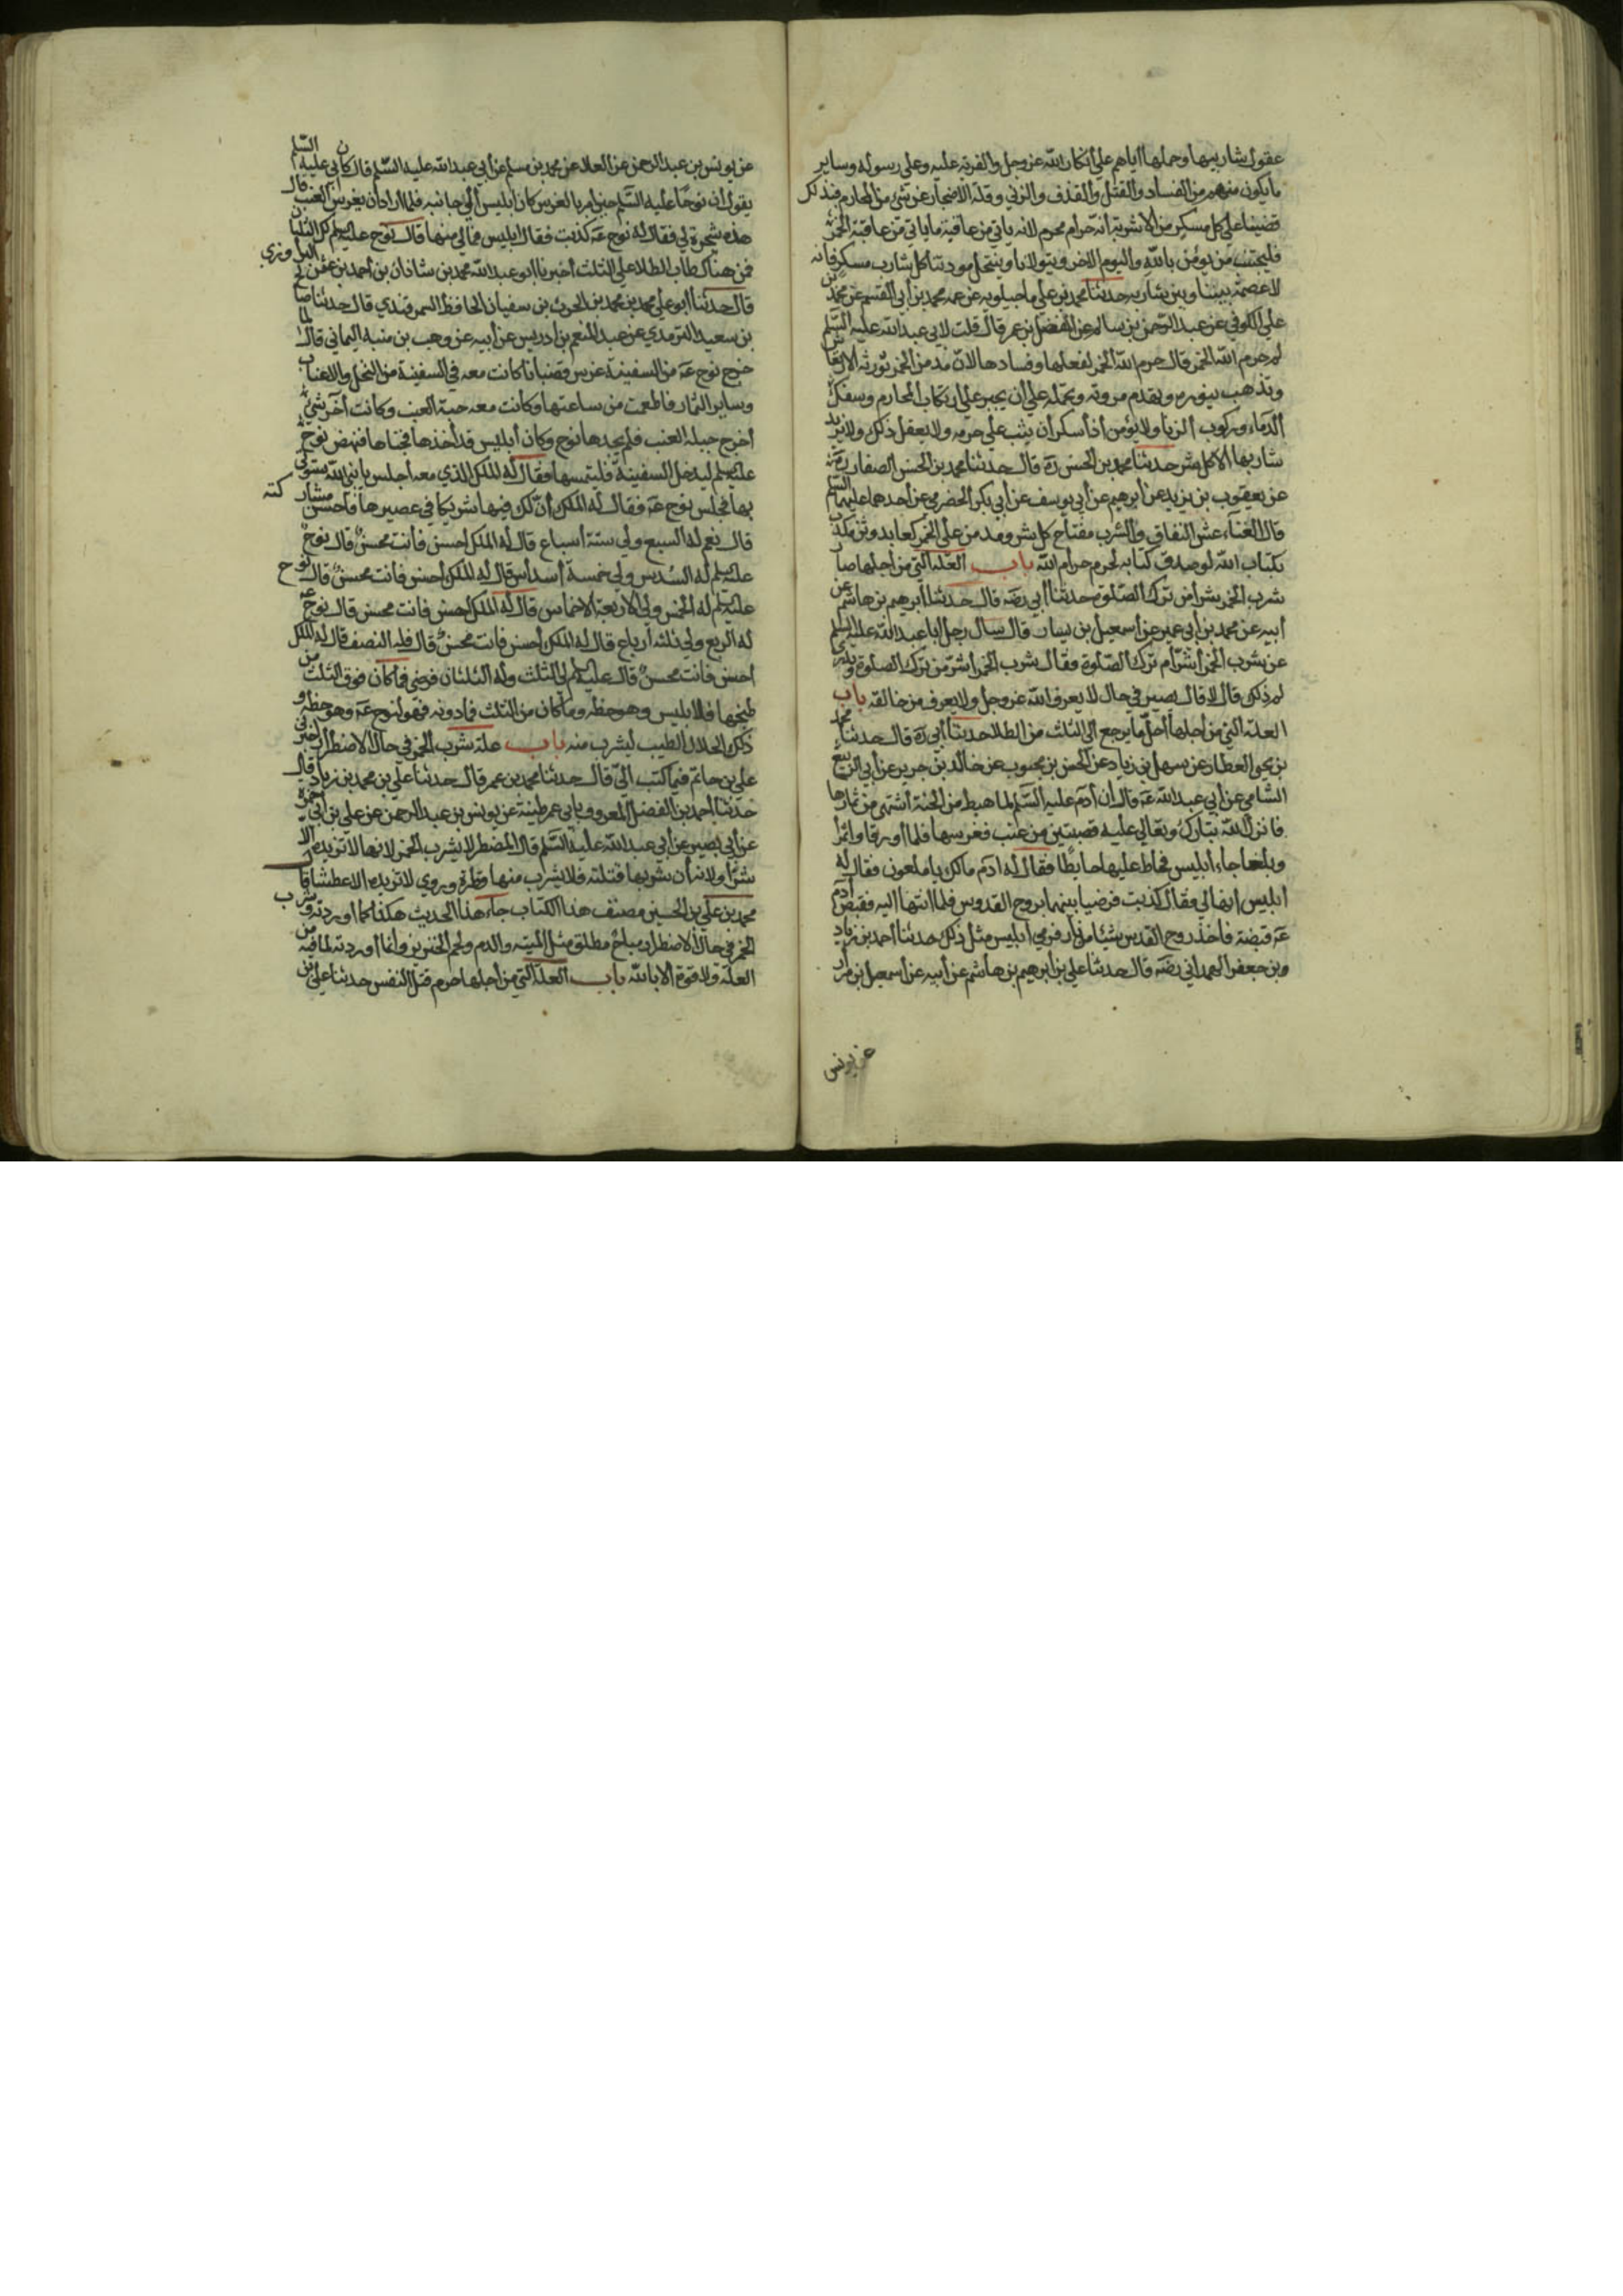 عقول شاربيها وحملها اياهم علي انكار الله عز وجل والفرية عليه وعلي رسوله وساير
ما يكون منهم من الفساد والقتل والقذف والزني وقلة الاحتجاز عن شئ من المحارم فبذلك
قضينا علي كل مسكر من الاشربة انه حرام محرم لانه ياتي من عاقبته ما ياتي من عاقبة الخمر
فليجتنب من يؤمن بالله واليوم الاخر ويتولانا وينتحل مودتنا كل شارب مسكر فانه
لا عصمة بيننا وبين شاربه حدثنا محمد بن علي ماجيلويه عن عمه محمد بن ابي القسم عن محمد بن
علي الكوفي عن عبد الرحمن بن سالم عن المفضل بن عمر قال قلت لابي عبد الله عليه السلم
لم حرم الله الخمر قال حرم الله الخمر لفعلها وفسادها لان مدمن الخمر تورثه الارتعاش
وتذهب بنوره ويهدم مروته وتحمله علي ان يجسر علي ارتكاب المحارم وسفك
الدماء وركوب الزنا ولا يؤمن اذا سكر ان يثب علي حرمه ولا يعقل ذلك ولا يزيد
شاربها الا كل شر حدثنا محمد بن الحسن ره قال حدثنا محمد بن الحسن الصفار
عن يعقوب بن يزيد عن ابرهيم عن ابي يوسف عن ابي بكر الحضرمي عن احدهما عليهما السلم
قال الغناء عش النفاق والشرب مفتاح كل شر ومدمن علي الخمر كعابد وثن مكذب
بكتاب الله لو صدق كتابه لحرم حرام الله باب العلة التي من اجلها صار
شرب الخمر شرا من ترك الصلوة حدثنا ابي رضه قال حدثنا ابرهيم بن هاشم عن
ابيه عن محمد بن ابي عمير عن اسمعيل بن يسار قال سال رجل ابا عبد الله عليه السلم
عن شرب الخمر اشر ام ترك الصلوة فقال شرب الخمر اشر من ترك الصلوة وتدري
لم ذلك قال لا قال يصير في حال لا يعرف الله عز وجل ولا يعرف من خالقه باب
العلة التي من اجلها احل ما يرجع الي الثلث من الطلا حدثنا ابي ره قال حدثنا محمد
بن يحيي العطار عن سهل بن زياد عن الحسن بن محبوب عن خالد بن جرير عن ابي الربيع
الشامي عن ابي عبد الله عه قال ان ادم عليه السلم لما هبط من الجنة اشتهي من ثمارها
فانزل الله تبارك وتعالي عليه قصبتين من عنب فغرسها فلما اورقا واثمرا
وبلغا جاء ابليس فحاط عليها حايطا فقال له ادم مالك يا ملعون فقال له
ابليس انها لي فقال كذبت فرضيا بينهما بروح القدوس فلما انتها اليه فقبض ادم
عه قبضة فاخذ روح القدس شيئا من نار فرمي ابليس مثل ذلك حدثنا احمد بن زياد
وبن جعفر الهمداني رضه قال حدثنا علي بن ابرهيم بن هاشم عن ابيه عن اسمعيل بن مرار
عن يونس
عن يونس بن عبد الرحمن عن العلا عن محمد بن مسلم عن ابي عبد الله عليه السلم قال كان ابي عليه السلم
يقول ان نوحا عليه السلم حين امر بالغرس كان ابليس الي جانبه فلما اراد ان يغرس العنب قال
هذه شجرة لي فقال له نوح عه كذبت فقال ابليس فما لي منها قال نوح عليه السلم لك الثلثان
فمن هناك طاب الطلا علي الثلث اخبرنا ابو عبد الله محمد بن شاذان بن احمد بن عثمن البروازي
قال حدثنا ابو علي محمد بن محمد بن الحرث بن سفيان الحافظ السمرقندي قال حدثنا صالح
بن سعيد الترمدي عن عبد المنعم بن ادريس عن ابيه عن وهب بن منبه اليماني قال لما
خرج نوح عه من السفينة غرس قضبانا كانت معه في السفينة من النخل والاعناب
وساير الثمار فاطعمت من ساعتها وكانت معه حبة العنب وكانت آخر شئ
أخرج حبلة العنب فلم يجدها نوح وكان أبليس قد أخذها فخباها فنهض نوح
عليه السلم ليدخل السفينة فليلتمسها فقال له الملك الذي معه اجلس يا نبي الله ستوتي
بها فجلس نوح عه فقال له الملك أن لك فيها شريكا في عصيرها فاحسن مشاركته
قال نعم له السبع ولي ستة أسباع قال له الملك احسن فأنت محسن قال نوح
عليه السلم له السديس ولي خمسة أسداس قال له الملك احسن فأنت محسن قال نوح
عليه السلم له الخمس ولي الاربعة الاخماس قال له الملك احسن فانت محسن قال نوح عه
له الربع ولي ثلثه ارباع قال له الملك أحسن فانت محسن قال فله النصف قال له الملك
احسن فانت محسن قال عليه السلم لي الثلث وله الثلثان فرضي فما كان فوق الثلث من
طبخها فلابليس وهو حظه وما كان من الثلث فما دونه فهو لنوح عه وهو حظه و
ذلك الحلال الطيب ليشرب منه باب علة شرب الخمر في حال الاضطرار اخبرني
علي بن حاتم فيما كتب الي قال حدثنا محمد بن عمر قال حدثنا علي بن محمد بن زياد قال
حدثنا احمد بن الفضل المعروف بابي عمر طيبة عن يونس بن عبد الرحمن عن علي بن ابي حمزة
عن أبي بصير عن أبي عبد الله عليه السلم قال المضطر لا يشرب الخمر لانها لا تزيده الا
شرا ولانه أن شربها قتلته فلا يشرب منها قطرة وروي لا تزيده الا عطشا قال
محمد بن علي بن الحسين مصنف هذا الكتاب جاء هذا الحديث هكذا كما اوردته وشرب
الخمر في حال الاضطرار مباح مطلق مثل الميته والدم ولحم الخنزير وانما اوردته لما فيه من
العلة ولا قوة الا بالله باب العلة التي من اجلها حرم قتل النفس حدثنا علي بن